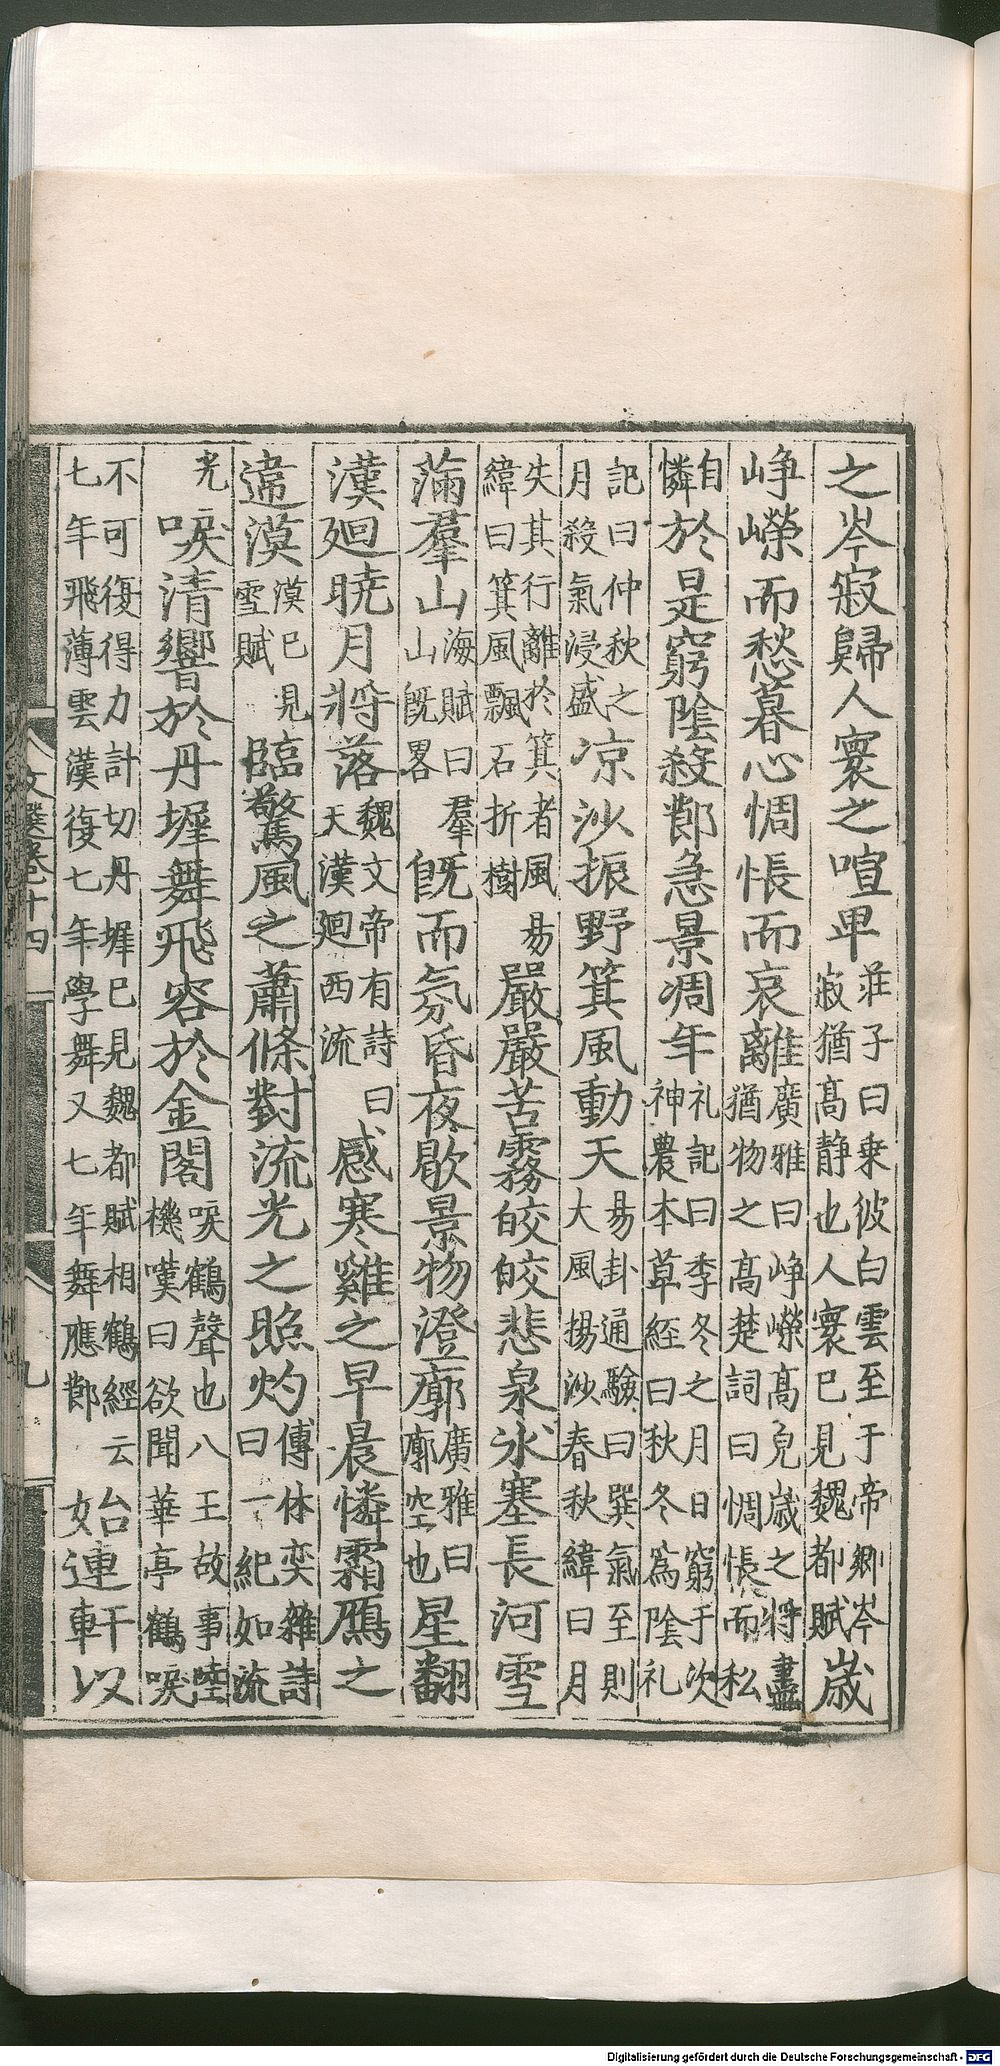 之岑寂歸人寰之喧卑莊子曰乗彼白雲至于帝郷岑寂猶髙静也人寰已見魏都賦歳
崢嶸而愁暮心惆悵而哀離廣雅曰崢嶸髙皃歳之將盡猶物之髙楚詞曰惆悵而私
自憐於是窮陰殺節急景凋年礼記曰季冬之月日窮于次神農本草経曰秋冬爲陰礼
記曰仲秋之月殺氣浸盛凉沙振野箕風動天易卦通驗曰巽氣至則大風揚沙春秋緯曰月
失其行離於箕者風易緯曰箕風飄石折樹嚴嚴苦霧皎皎悲泉氷塞長河雪
滿羣山海賦曰羣山旣畧旣而氛昏夜歇景物澄廓廣雅曰廓空也星翻
漢廻暁月將落魏文帝有詩曰天漢廻西流感寒雞之早晨憐霜鴈之
違漠漠已見雪賦臨驚風之蕭條對流光之照灼傅休奕雜詩曰一紀如流
光唳清響於丹墀舞飛容於金閣唳鶴聲也八王故事陸機嘆曰欲聞華亭鶴唳
不可復得力計切丹墀已見魏都賦相鶴經云七年飛薄雲漢復七年學舞又七年舞應節始連軒以
文選卷十四
九
Digitalisierung gefördert durch die Deutsche Forschungsgemeinschaft - DFG